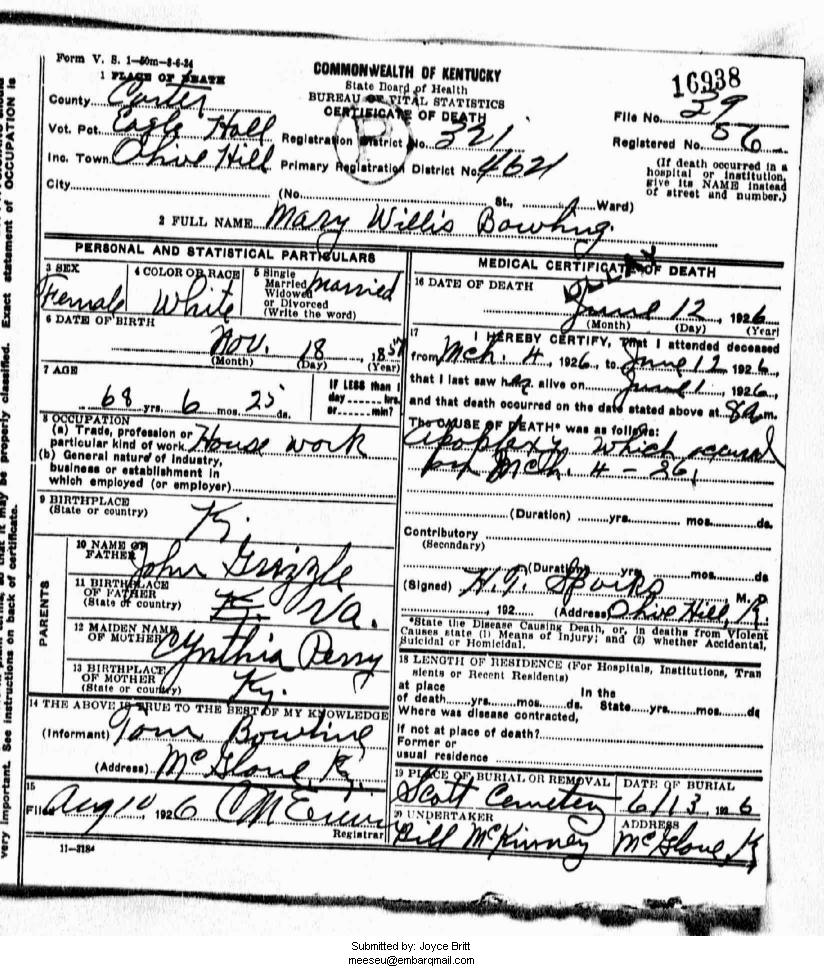 Form V. S. 1—50m—8-6-24
COMMONWEALTH OF KENTUCKY
State Board of Health
BUREAU OF VITAL STATISTICS
CERTIFICATE OF DEATH
16938
1 PLACE OF DEATH
County Carter
File No. 39
Vot. Pct. Eagle Hall
Registration District No. 321
Registered No. 56
Inc. Town Olive Hill
Primary Registration District No. 4621
(If death occurred in a hospital or institution, give its NAME instead of street and number.)
City (No. St., Ward)
2 FULL NAME Mary Willis Bowling
PERSONAL AND STATISTICAL PARTICULARS
3 SEX Female
4 COLOR OR RACE White
5 Single Married Widowed or Divorced (Write the word) Married
6 DATE OF BIRTH
Nov. 18, 1857
(Month) (Day) (Year)
7 AGE
68 yrs. 6 mos. 25 ds.
IF LESS than 1 day hrs. or min?
8 OCCUPATION
(a) Trade, profession or particular kind of work House work
(b) General nature of industry, business or establishment in which employed (or employer)
9 BIRTHPLACE
(State or country) Ky.
PARENTS
10 NAME OF FATHER John Grizzle
11 BIRTHPLACE OF FATHER (State or country) Ky. Va.
12 MAIDEN NAME OF MOTHER Cynthia Perry
13 BIRTHPLACE OF MOTHER (State or country) Ky.
14 THE ABOVE IS TRUE TO THE BEST OF MY KNOWLEDGE
(Informant) Tom Bowling
(Address) McGlone, Ky.
15
Filed Aug 10 1926
Registrar
11—3184
MEDICAL CERTIFICATE OF DEATH
DELAY
16 DATE OF DEATH
June 12, 1926
(Month) (Day) (Year)
17 I HEREBY CERTIFY, That I attended deceased
from Mch. 4, 1926, to June 12 1926,
that I last saw her alive on June 1, 1926,
and that death occurred on the date stated above at 8a m.
The CAUSE OF DEATH* was as follows:
Apoplexy which
Mch. 4 - 26,
(Duration) yrs. mos. ds.
Contributory
(Secondary)
(Duration) yrs. mos. ds
(Signed) H.T. Sparks M. D.
, 192 (Address) Olive Hill, K.
*State the Disease Causing Death, or, in deaths from Violent Causes state (1) Means of Injury; and (2) whether Accidental, Suicidal or Homicidal.
18 LENGTH OF RESIDENCE (For Hospitals, Institutions, Tran
sients or Recent Residents)
at place of death yrs. mos. ds. In the State yrs. mos. ds
Where was disease contracted,
If not at place of death?
Former or
usual residence
19 PLACE OF BURIAL OR REMOVAL Scott Cemetery
DATE OF BURIAL 6/13, 1926
20 UNDERTAKER Bill McKinney
ADDRESS McGlone, K
very important. See instructions on back of certificate.
it may be properly classified. Exact statement of OCCUPATION is
Submitted by: Joyce Britt
meeseu@embarqmail.com